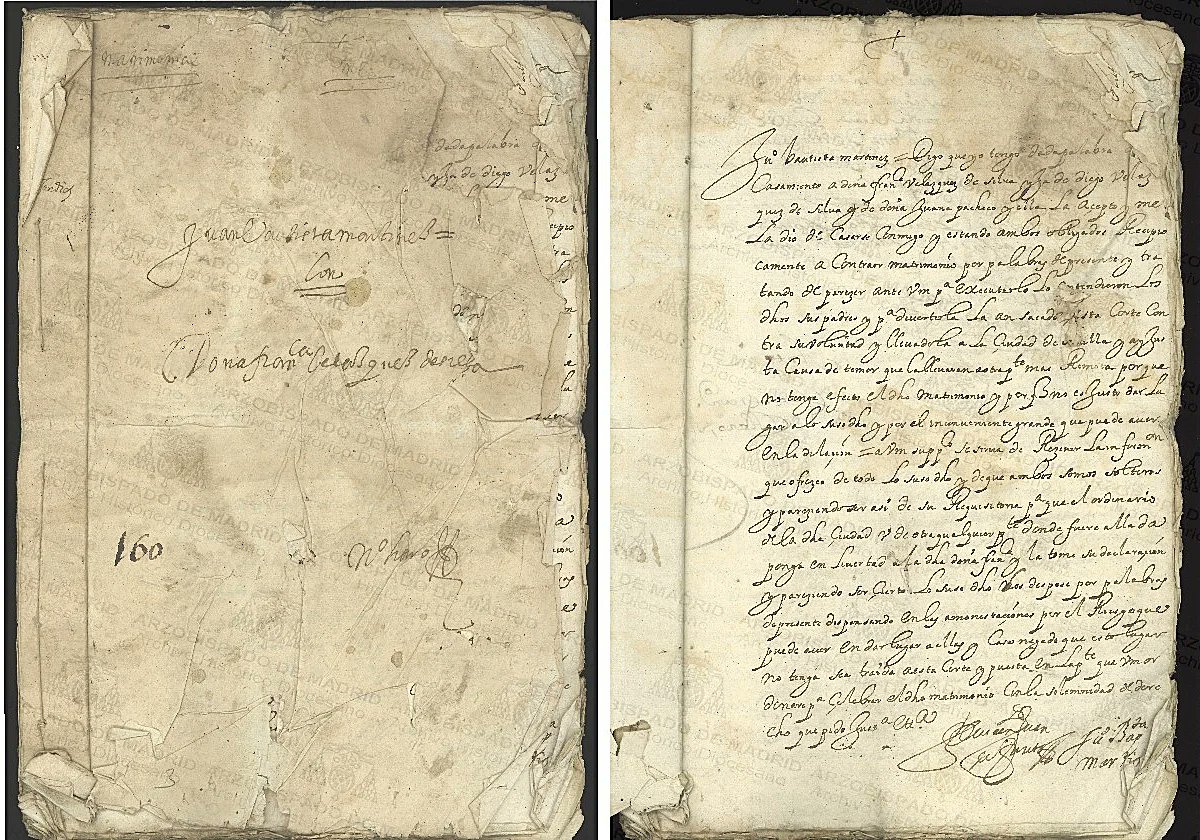 matrimonial
dada palabra
hija de diego Velaz
Juan bautista martinez =
Con
Dona fran.ca Velasquez de silva
160
N.o haro
Ju.o bautista martinez = Digo que yo tengo dada palabra
Casamiento a doña fran.ca Velazquez de silva hija de diego Velaz
quez de silva y de doña Juana pacheco y ella la acepto y me
la dio de Casarse Conmigo y estando ambos obligados Recipro
camente a Contraer matrimonio por palabras de presente y tra
tando de parezer ante Vm p.a executarlo lo entendieron los
dhos sus padres y p.a divertirla la an sacado desta Corte Con
tra su voluntad y llevadola a la Ciudad de sevilla y ay Jus
ta Causa de temor que la llevaran a otra p.te mas Remota porque
no tenga efecto el dho matrimonio y por q no es Justo dar lu
gar a lo suso dho y por el inconveniente grande que puede aver
en la dilaçion = a Vm supp.co se sirva de Rezevir la informon
que ofrezco de todo lo suso dho y de que ambos somos solteros
y pareziendo ser asi de su Requisitoria p.a que el ordinario
de la dha Ciudad v de otra qualquier p.te donde fuere allada
ponga en livertad a la dha doña fran.ca y la tome su declaraçion
y pareziendo ser Cierto lo suso dho nos despose por palabras
de presente dispensando en las amonestaçiones por el Riesgo que
puede aver en dar lugar a ellas y Caso negado que esto lugar
no tenga sea traida a esta Corte y puesta en la p.te que Vm or
denare p.a Celebrar el dho matrimonio Con la solemnidad de dere
cho que pido Jus.a Etta
Ju.o Bap.ta
martin